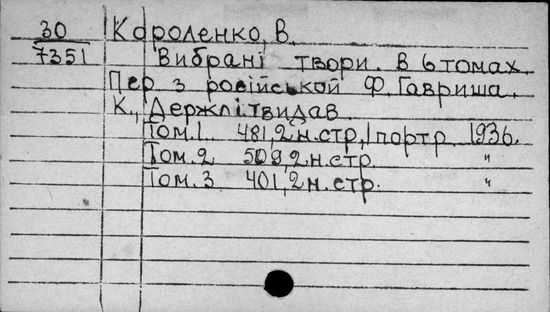 30 Короленко, В.
7351 Вибрані твори. В 6 томах.
Пер. з російської Ф. Гавриша.
К., Держлітвидав.
Том. 1. 481, 2 н. стр, 1 портр 1936.
Том. 2 509, 2 н. стр. "
Том. 3 401, 2 н. стр. "